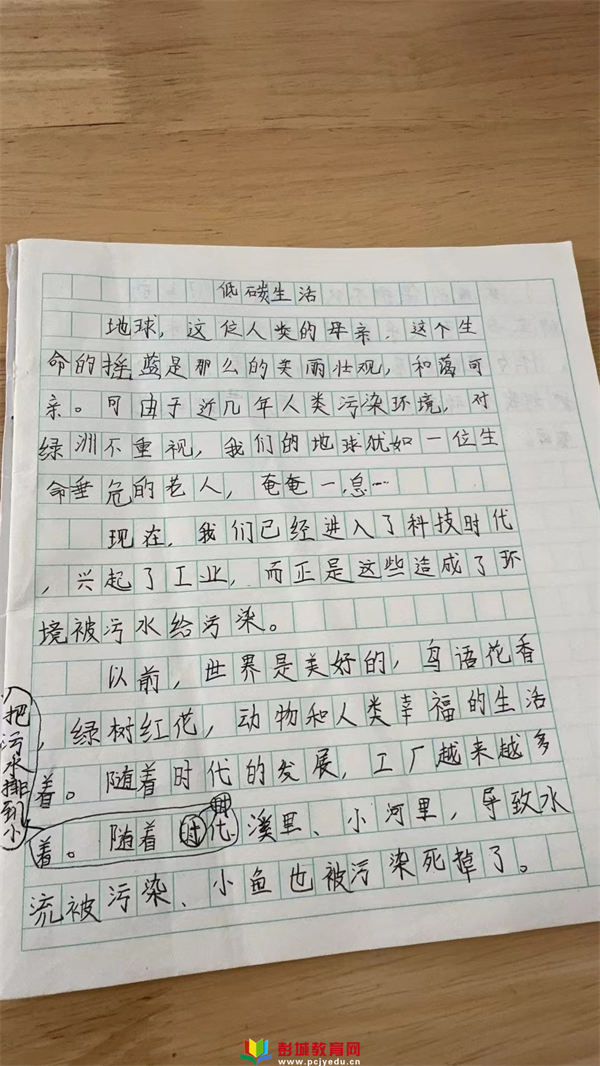 低碳生活
地球，这位人类的母亲，这个生
命的摇蓝是那么的美丽壮观，和蔼可
亲。可由于近几年人类污染环境，对
绿洲不重视，我们的地球犹如一位生
命垂危的老人，奄奄一息…
现在，我们已经进入了科技时代
，兴起了工业，而正是这些造成了环
境被污水给污染。
以前，世界是美好的，鸟语花香
，绿树红花，动物和人类幸福的生活
着。随着时代的发展，工厂越来越多
把污水排到小
着。随着时代溪里、小河里，导致水
流被污染、小鱼也被污染死掉了。
彭城教育网
www.pcjyedu.cn